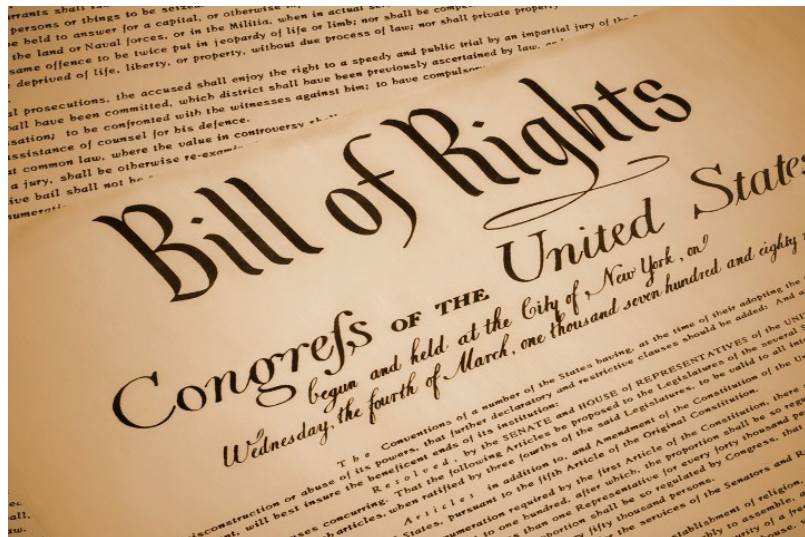 rrants shall
persons or things to be seized
be held to answer for a capital, or otherwise
the land or Naval forces, or in the Militia, when in actual
same offence to be twice put in jeopardy of life or limb; nor shall be
deprived of life, liberty, or property, without due process of law; nor shall private property
al prosecutions, the accused shall enjoy the right to a speedy and public trial by an impartial jury of the
all have been committed, which district shall have been previously ascertained by law, and
sation; to be confronted with the witnesses against him; to have compulsory
ssistance of counsel for his defence.
at common law, where the value in controversy shall
a jury, shall be otherwise re-exam
ive bail shall not be
numerati
Bill of Rights
Congreſs OF THE United States
begun and held at the City of New York, on
Wednesday, the fourth of March, one thousand seven hundred and eighty
The Conventions of a number of the States having, at the time of their adopting the
isconstruction or abuse of its powers, that further declaratory and restrictive clauses should be added: And
nt, will best insure the beneficent ends of its institution:
Resolved, by the SENATE and HOUSE of REPRESENTATIVES of the UNI
ses concurring. That the following Articles be proposed to the Legislatures of the several
articles, when ratified by three fourths of the said Legislatures, to be valid to all int
Articles in addition to, and Amendment of the Constitution of the
States, pursuant to the fifth Article of the Original Constitution.
numeration required by the first Article of the Constitution, there
to one hundred, after which, the proportion shall be so reg
than one Representative for every forty thousand per
portion shall be so regulated by Congress, that
fifty thousand persons.
for the services of the Senators and R
establishment of religion,
to assemble,
of a fre
house,
ec.
all.
aw.